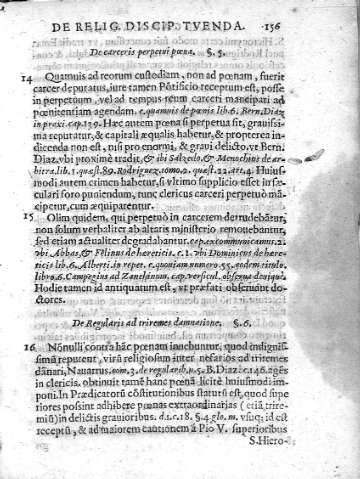 DE RELIG. DISCIP. TVENDA. 156
De carceris perpetui pœna. §. 5.
14 Quamuis ad reorum custodiam, non ad pœnam, fuerit
carcer deputatus, iure tamen Põtificio receptum est, posse
in perpetuum, vel ad tempus reum carceri mancipari ad
pœnitentiam agendam. c. quamuis de pœnis lib. 6. Bern. Diaz
in praxi cap. 139. Hæc autem pœna si perpetua sit, grauissi-
ma reputatur, & capitali æqualis habetur, & propterea in-
dicenda non est, nisi pro enormi, & graui delicto, vt Bern.
Diaz. vbi proximè tradit, & ibi Salzedo, & Menochius de ar-
bitra. lib. 1. quæst. 89. Rodriguez. tomo. 2. quæst. 22. art. 4. Huius-
modi autem crimen habetur, si vltimo supplicio esset in sæ-
culari foro puniendum, tunc clericus carceri perpetuò mã-
cipetur, cum æquiparentur.
15 Olim quidem, qui perpetuò in carcerem detrudebãtur,
non solum verbaliter ab altaris ministerio remouebantur,
sed etiam actualiter degradabantur. cap. excommunicamus. 2.
vbi Abbas, & Felinus de hæreticis. c. 1. vbi Dominicus de hære-
ticis lib. 6. Alberti. in repet. c. quoniam numero 55. eodem titulo,
libro. 6. Campegius ad Zanchinum. cap.
Hodie tamen id antiquatum est, vt præfati obseruant do-
ctores.
De Regularis ad triremes damnatione. §. 6.
16 Nõnulli contra hãc pœnam inuehuntur, quod indignis-
simũ reputent, virũ religiosum inter nefarios ad triremes
dãnari, Nauarrus, com. 3. de regularib. n. 5. B. Diaz. c. 146. ages
in clericis. obtinuit tamẽ hanc pœnã licitè huiusmodi im-
poni. In Prædicatorũ cõstitutionibus statutũ est, quod supe
riores possint adhibere pœnas extraordinarias (etiã trire-
miũ) in delictis grauioribus. d. 1. c. 18. §. 4. glo. m. vsuq; id est
receptũ, & ad maiorem cautionem à Pio V. superioribus
S. Hiero-